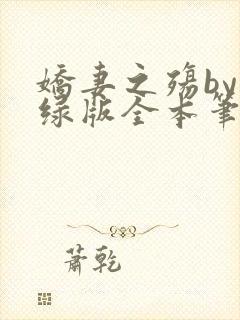 娇妻之殇by
绿版全本笔
萧乾